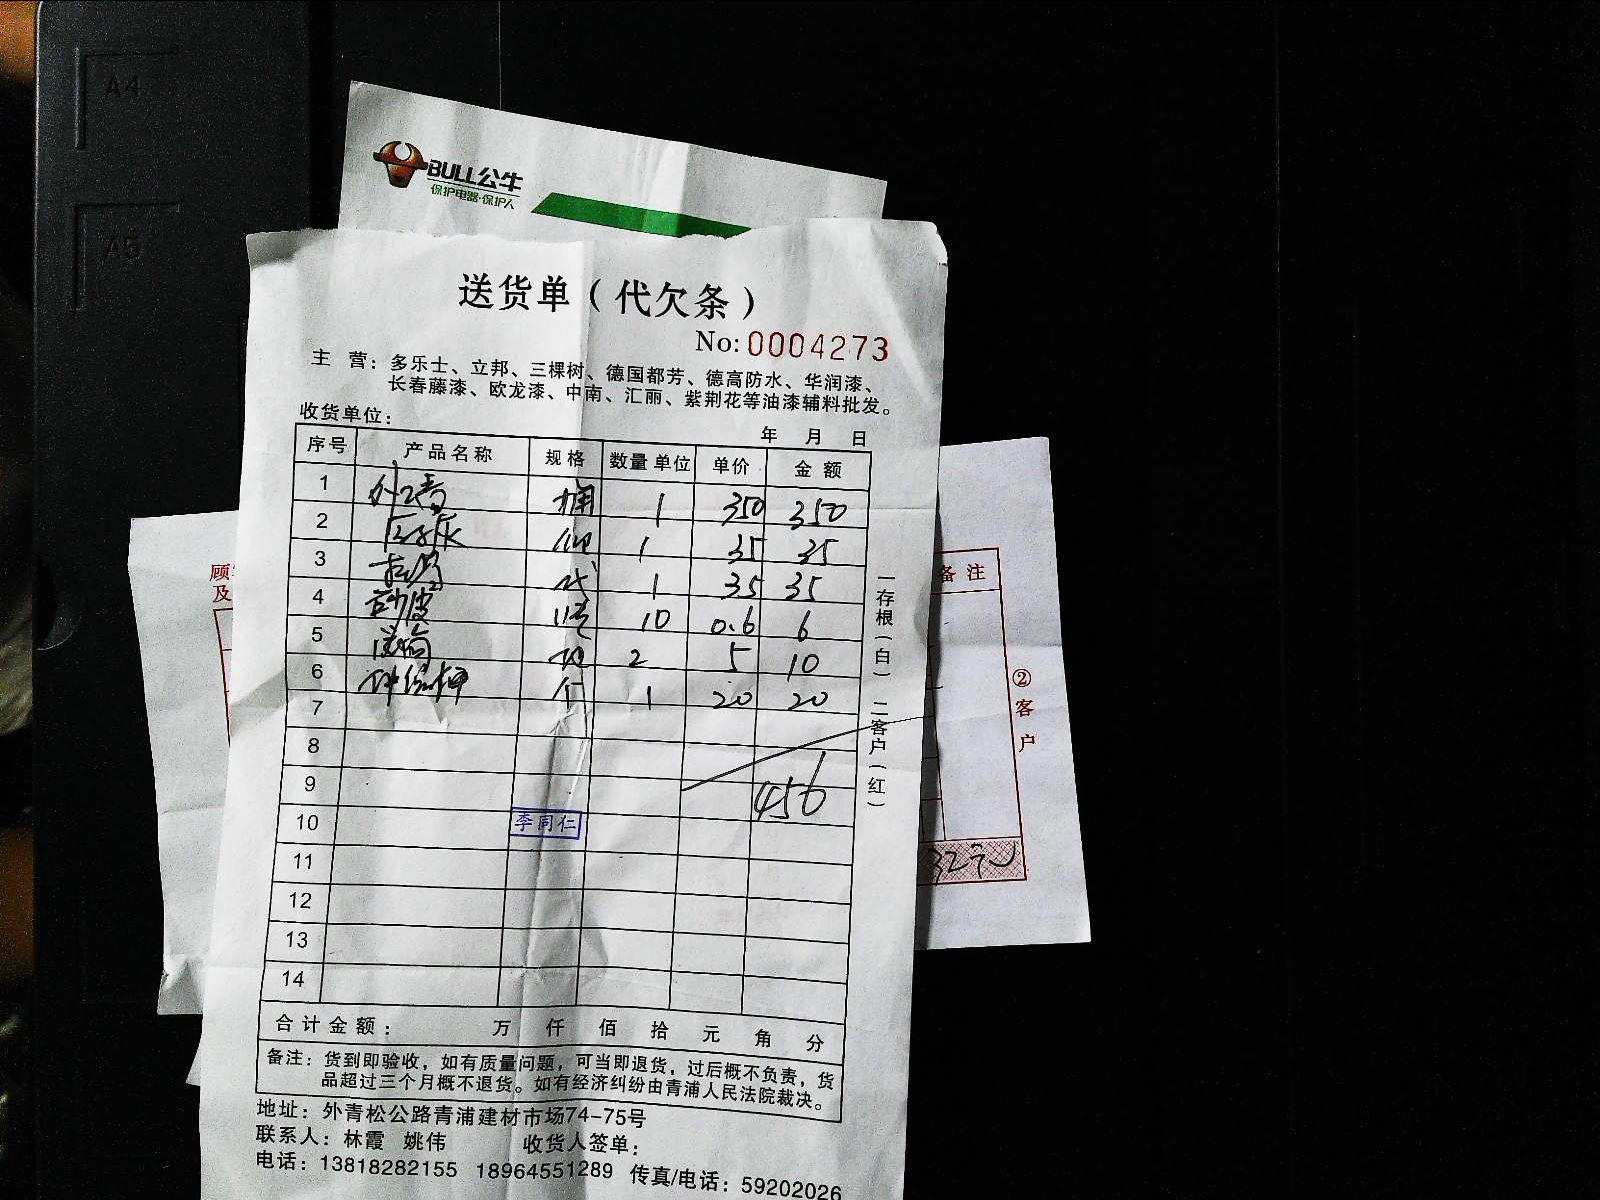 A4
A5
BULL公牛
保护电器·保护人
送货单（代欠条）
No: 0004273
主 营：多乐士、立邦、三棵树、德国都芳、德高防水、华润漆、
长春藤漆、欧龙漆、中南、汇丽、紫荆花等油漆辅料批发。
收货单位：
年 月 日
序号 产品名称 规格 数量 单位 单价 金额
1 外墙 桶 1 350 350
2 1 35 35
3 1 35 35
4 砂皮 张 10 0.6 6
5 2 5 10
6 伸缩杆 个 1 20 20
7
8
9 456
10 李同仁
11
12
13
14
合计金额： 万 仟 佰 拾 元 角 分
备注：货到即验收，如有质量问题，可当即退货，过后概不负责，货
品超过三个月概不退货。如有经济纠纷由青浦人民法院裁决。
地址：外青松公路青浦建材市场74-75号
联系人：林霞 姚伟 收货人签单：
电话：13818282155 18964551289 传真/电话：59202026
一存根（白） 二客户（红）
顾
及
备注
②客户
32元